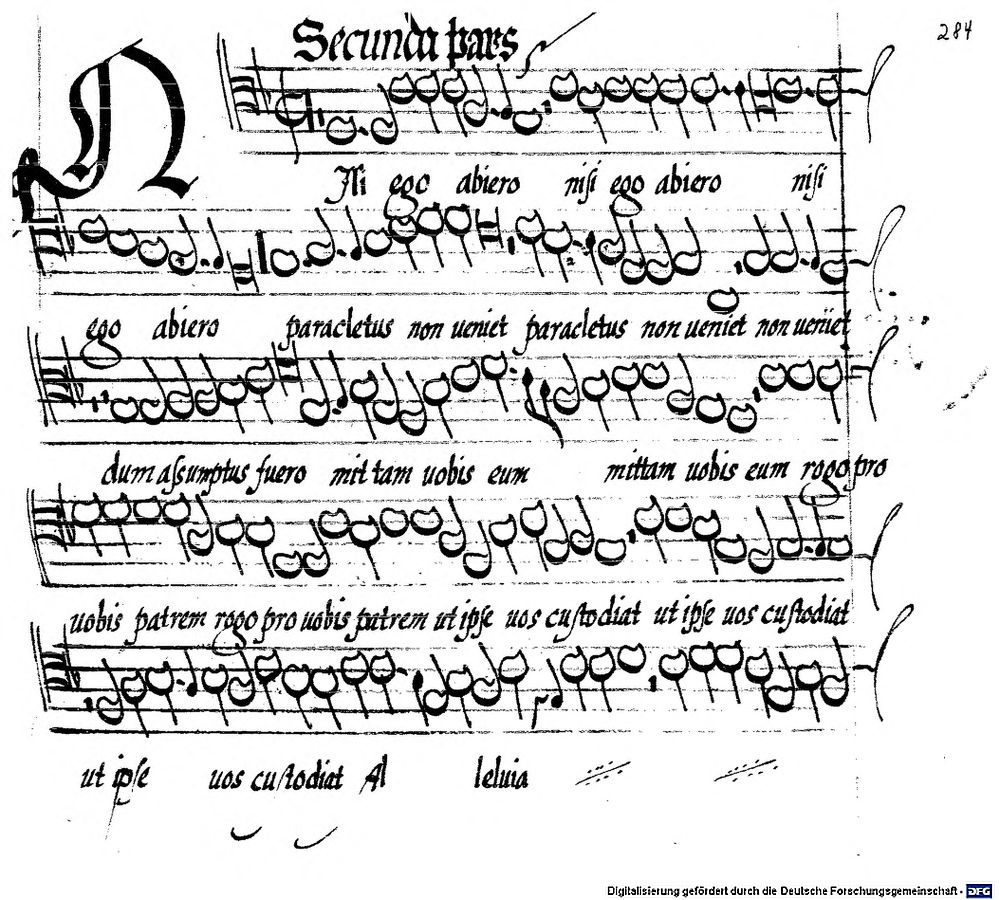 284
Secunda pars
NIsi ego abiero nisi ego abiero nisi
ego abiero paracletus non ueniet paracletus non ueniet non ueniet
dum assumptus fuero mittam uobis eum mittam uobis eum rogo pro
uobis patrem rogo pro uobis patrem ut ipse uos custodiat ut ipse uos custodiat
ut ipse uos custodiat Al leluia
Digitalisierung gefördert durch die Deutsche Forschungsgemeinschaft - DFG